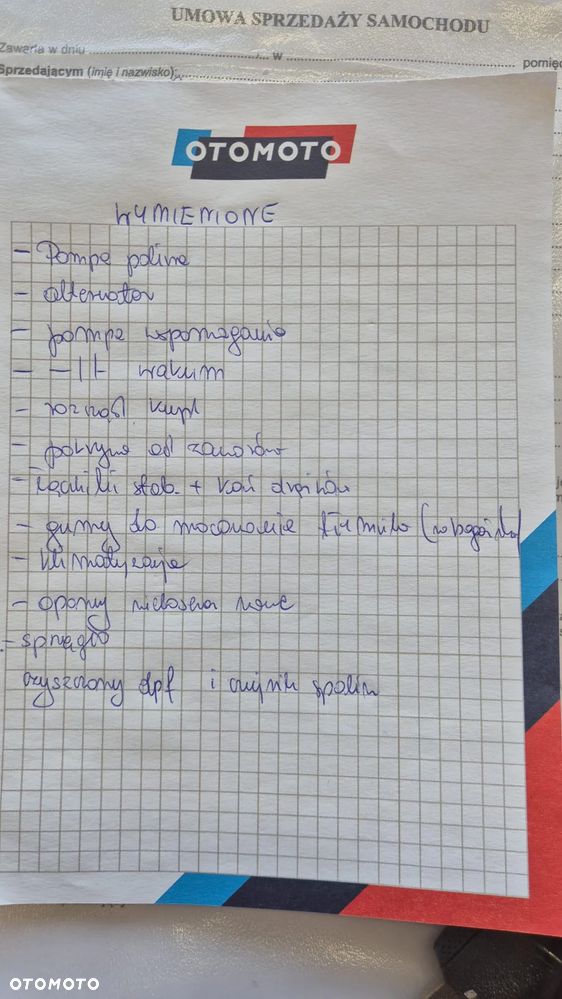 UMOWA SPRZEDAŻY SAMOCHODU
Zawarta w dniu ... w ... pomię
Sprzedającym (imię i nazwisko):
OTOMOTO
WYMIENIONE
- Pompa paliwa
- alternator
- pompa wspomagania
- -||- wakum
- rozrząd kupl
- pokrywa od zaworów
- Łączniki stab. + koń drążków
- gumy do mocowania tłumika
- klimatyzacja
- opony wielosezon nowe
- sprzęgło
czyszczony dpf i czujnik spalin
OTOMOTO